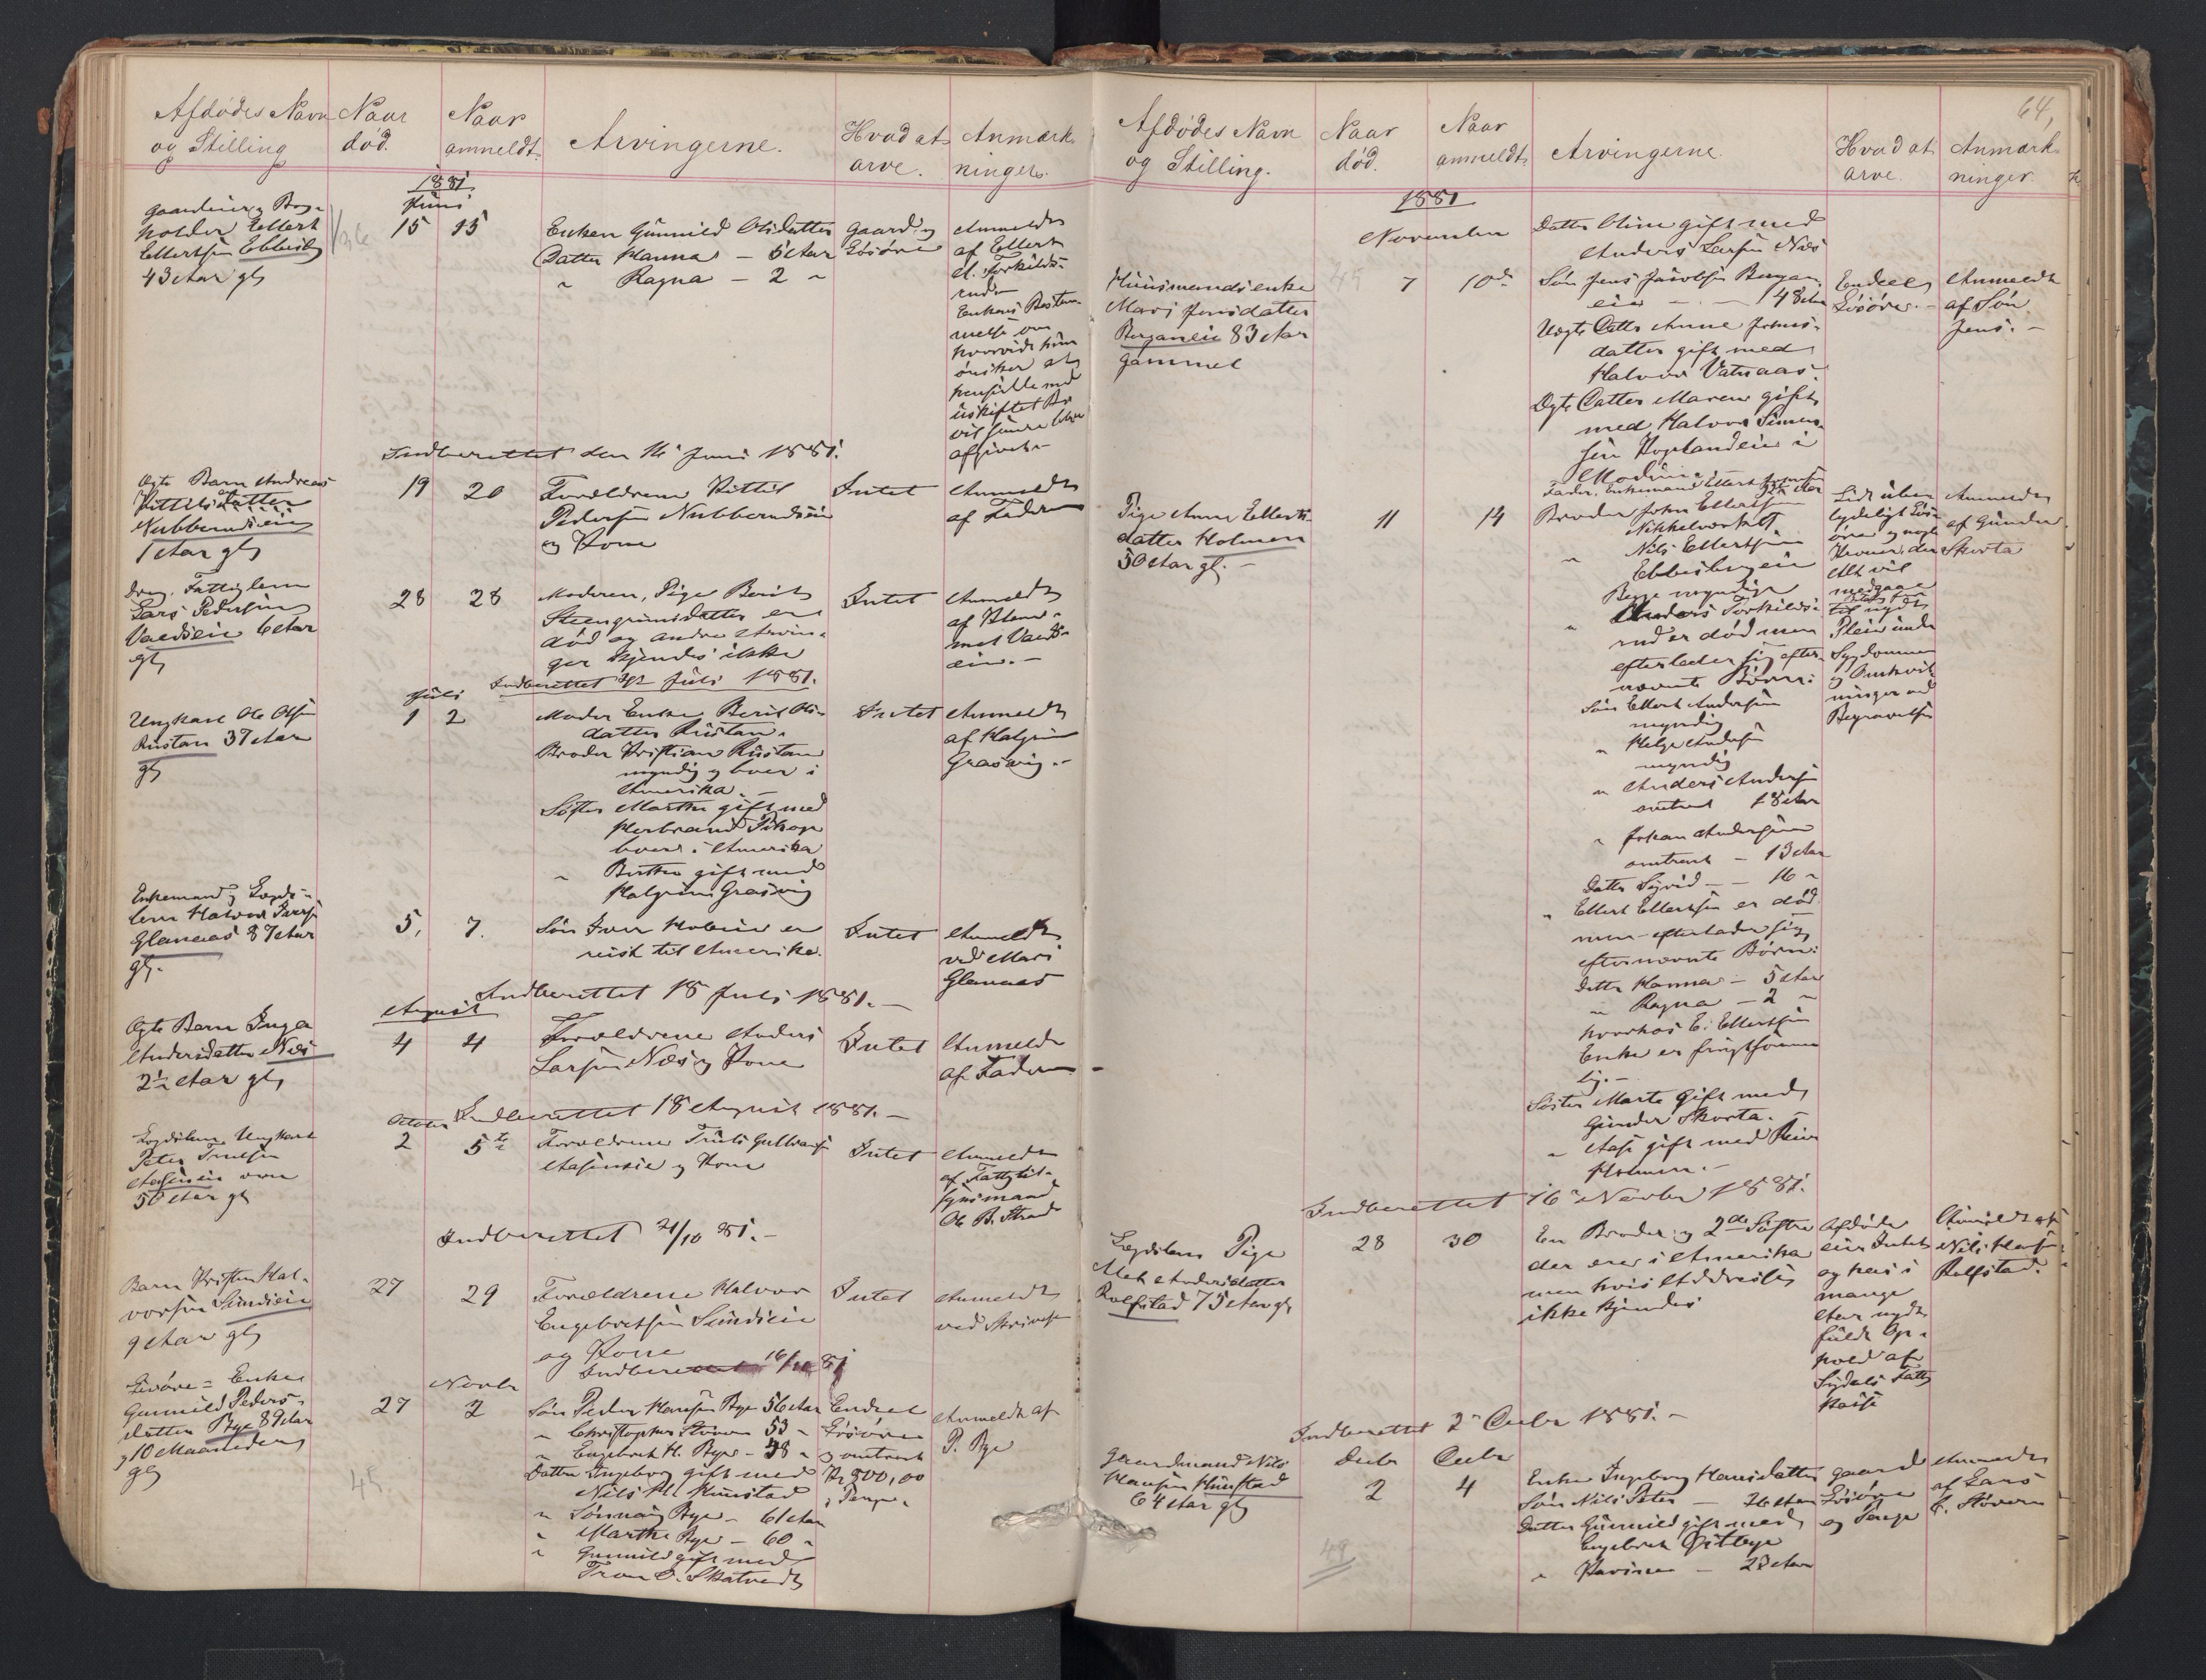 Afdødes Navn
og Stilling
Naar
død.
Naar
anmeldt.
Arvingerne.
Hvad at
arve.
Anmærk-
ninger.
1881
Juni
Gaardeier og
holder Ellert
Ellertsen Ebbesberg
43 Aar gl
15
15
Enken Gunnild Olsdatter
Datter Hanna – 5 Aar
" Ragna – 2 "
Gaard og
Løsøre
Anmeldt
af Ellert
A. Torkilds-
rud
Enkens Bestem-
melse om
hvorvidt hun
ønsker at
hensidde med
uskiftet Bo
vil senere blive
afgivet
Indberettet den 16 Juni 1881.
Ægte Barn Andreas
Kittils
Nubberudeie
1 Aar gl
19
20
Forældrene Kittil
Pedersen Nubberudeie
og Kone
Intet
Anmeldt
af Faderen
Dreng, Fattiglem
Lars Pedersen
6 Aar
gl
28
28
Moderen, Pige Berit
Steengrimsdatter er
død og andre Arvin-
ger kjendes ikke
Intet
Anmeldt
af
Indberettet 2/7 Juli 1881.
Juli
Ungkarl Ole Olsen
Rustan 37 Aar
gl
1
2
Moder Enke Berit Ols-
datter Rustan.
Broder Kristian Rustan
myndig og boer i
Amerika. –
Søster Marthe gift med
Herbrand
boer i Amerika
" Birthe gift med
Halgrim Grasvig
Intet
Anmeldt
af Halgrim
Grasvig. –
Enkemand og Lægds-
lem Halvor Iversen
Glanaas 87 Aar
gl.
5,
7.
Søn Iver er
reist til Amerika.
Intet
Anmeldt
ved Mari
Glanaas
Indberettet 18 Juli 1881. –
August
Ægte Barn Inga
Andersdatter Næs
2½ Aar gl
4
4
Forældrene Anders
Larsen Næs og Kone
Intet
Anmeldt
af Faderen
Indberettet 18 August 1881. –
October
Lægdslem Ungkarl
Peter Trulsen
Aaseneie over
50 Aar gl
2
5te
Forældrene Truls Gulbransen
Aaseneie og Kone
Intet
Anmeldt
af Fattigtil-
synsmand
Ole B. Strand
Indberettet 21/10 81. –
Barn Kristen Hal-
vorsen Sundeie
9 Aar gl
27
29
Forældrene Halvor
Engebretsen Sundeie
og Kone
Intet
Anmeldt
ved Skrivelse
Indberettet 16/ 81
Novbr
Livøre = Enke
Gunnild Peders-
datter Bye 89 Aar
og 10 Maaneder
gl
27
2
45
Søn Peder Hansen Bye 56 Aar
" Christopher Støveren 53 "
" Engebret H. Bye – 48 "
Datter Ingeborg gift med
Nils H. Hunstad
" Sønnøug Bye – 61 Aar
" Marthe Bye – 60 "
" Gunnild gift med
Tron O. Skatvedt
Endeel
Løsøre
og omtrent
Kr 800,00
i Penge
Anmeldt af
P. Bye
64,
Afdødes Navn
og Stilling.
Naar
død.
Naar
anmeldt.
Arvingerne.
Hvad at
arve.
Anmærk-
ninger.
1881
November
Datter Oline gift med
Anders Larsen Næs
Huusmandsenke
Mari Jensdatter
Berganeie 83 Aar
gammel
45
7
10de
Søn Jens Jacobsen Bergan-
eie – – 48 Aar
Uægte Datter Anne Johns-
datter gift med
Halvor Vatnaas.
Ægte Datter Maren gift
med Halvor Simen-
sen Hoglandeie i
Modum
Endeel
Løsøre. –
Anmeldt
af Søn
Jens. –
Pige Anne Ellerts-
datter Holmen
50 Aar gl. –
11
14
Fader, Enkemand Ellert
Broder John Ellertsen
Nikkelværket
" Nils Ellertsen
Ebbesbergeie
Begge myndige
" Anders Torkilds-
rud er død men
efterlader sig efter-
nævnte Børn:
Søn Ellert Andersen
myndig
" Helge Andersen
myndig
" Anders Andersen
omtrent 18 Aar
" Johan Andersen
omtrent – 13 Aar
Datter Sigrid – – 16 "
" Ellert Ellertsen er død
men efterlader sig
efternævnte Børn:
Datter Hanna – 5 Aar
" Ragna – 2 "
hvorhos E. Ellertsens
Enke er frugtsomme-
lig. –
Søster Marte gift med
Gunder Skorta.
" Aase gift med
Holmen. –
Lidt ube-
tydeligt Løs-
øre og nogle
Kroner, der
Alt vil
medgaae
til nydt
Pleie under
Sygdommen
og Omkost-
ninger ved
Begravelsen
Anmeldt
af Gunder
Skorta
Indberettet 16 Novbr 1881.
Lægdslem Pige
Mek Andersdatter
Rolfstad 75 Aar gl
28
30
En Broder og 2de Søstre
der ere i Amerika
men hvis Addresse
ikke kjendes
Afdøde
eier Intet
og har i
mange
Aar nydt
fuldt Op-
hold af
Sigdals Fattig-
kasse
Anmeldt af
Nils
Rolfstad.
Indberettet 2 Decbr 1881. –
Decbr
Decbr
Gaardmand Nils
Hansen Hunstad
64 Aar gl
2
4
49
Enke Ingeborg Hansdatter
Søn Nils Peter – 26 Aar
Datter Gunnild gift med
Engebret
" Karine – 23 Aar
Gaard
Løsøre
og Penge
Anmeldt
af Lars
C. Støveren